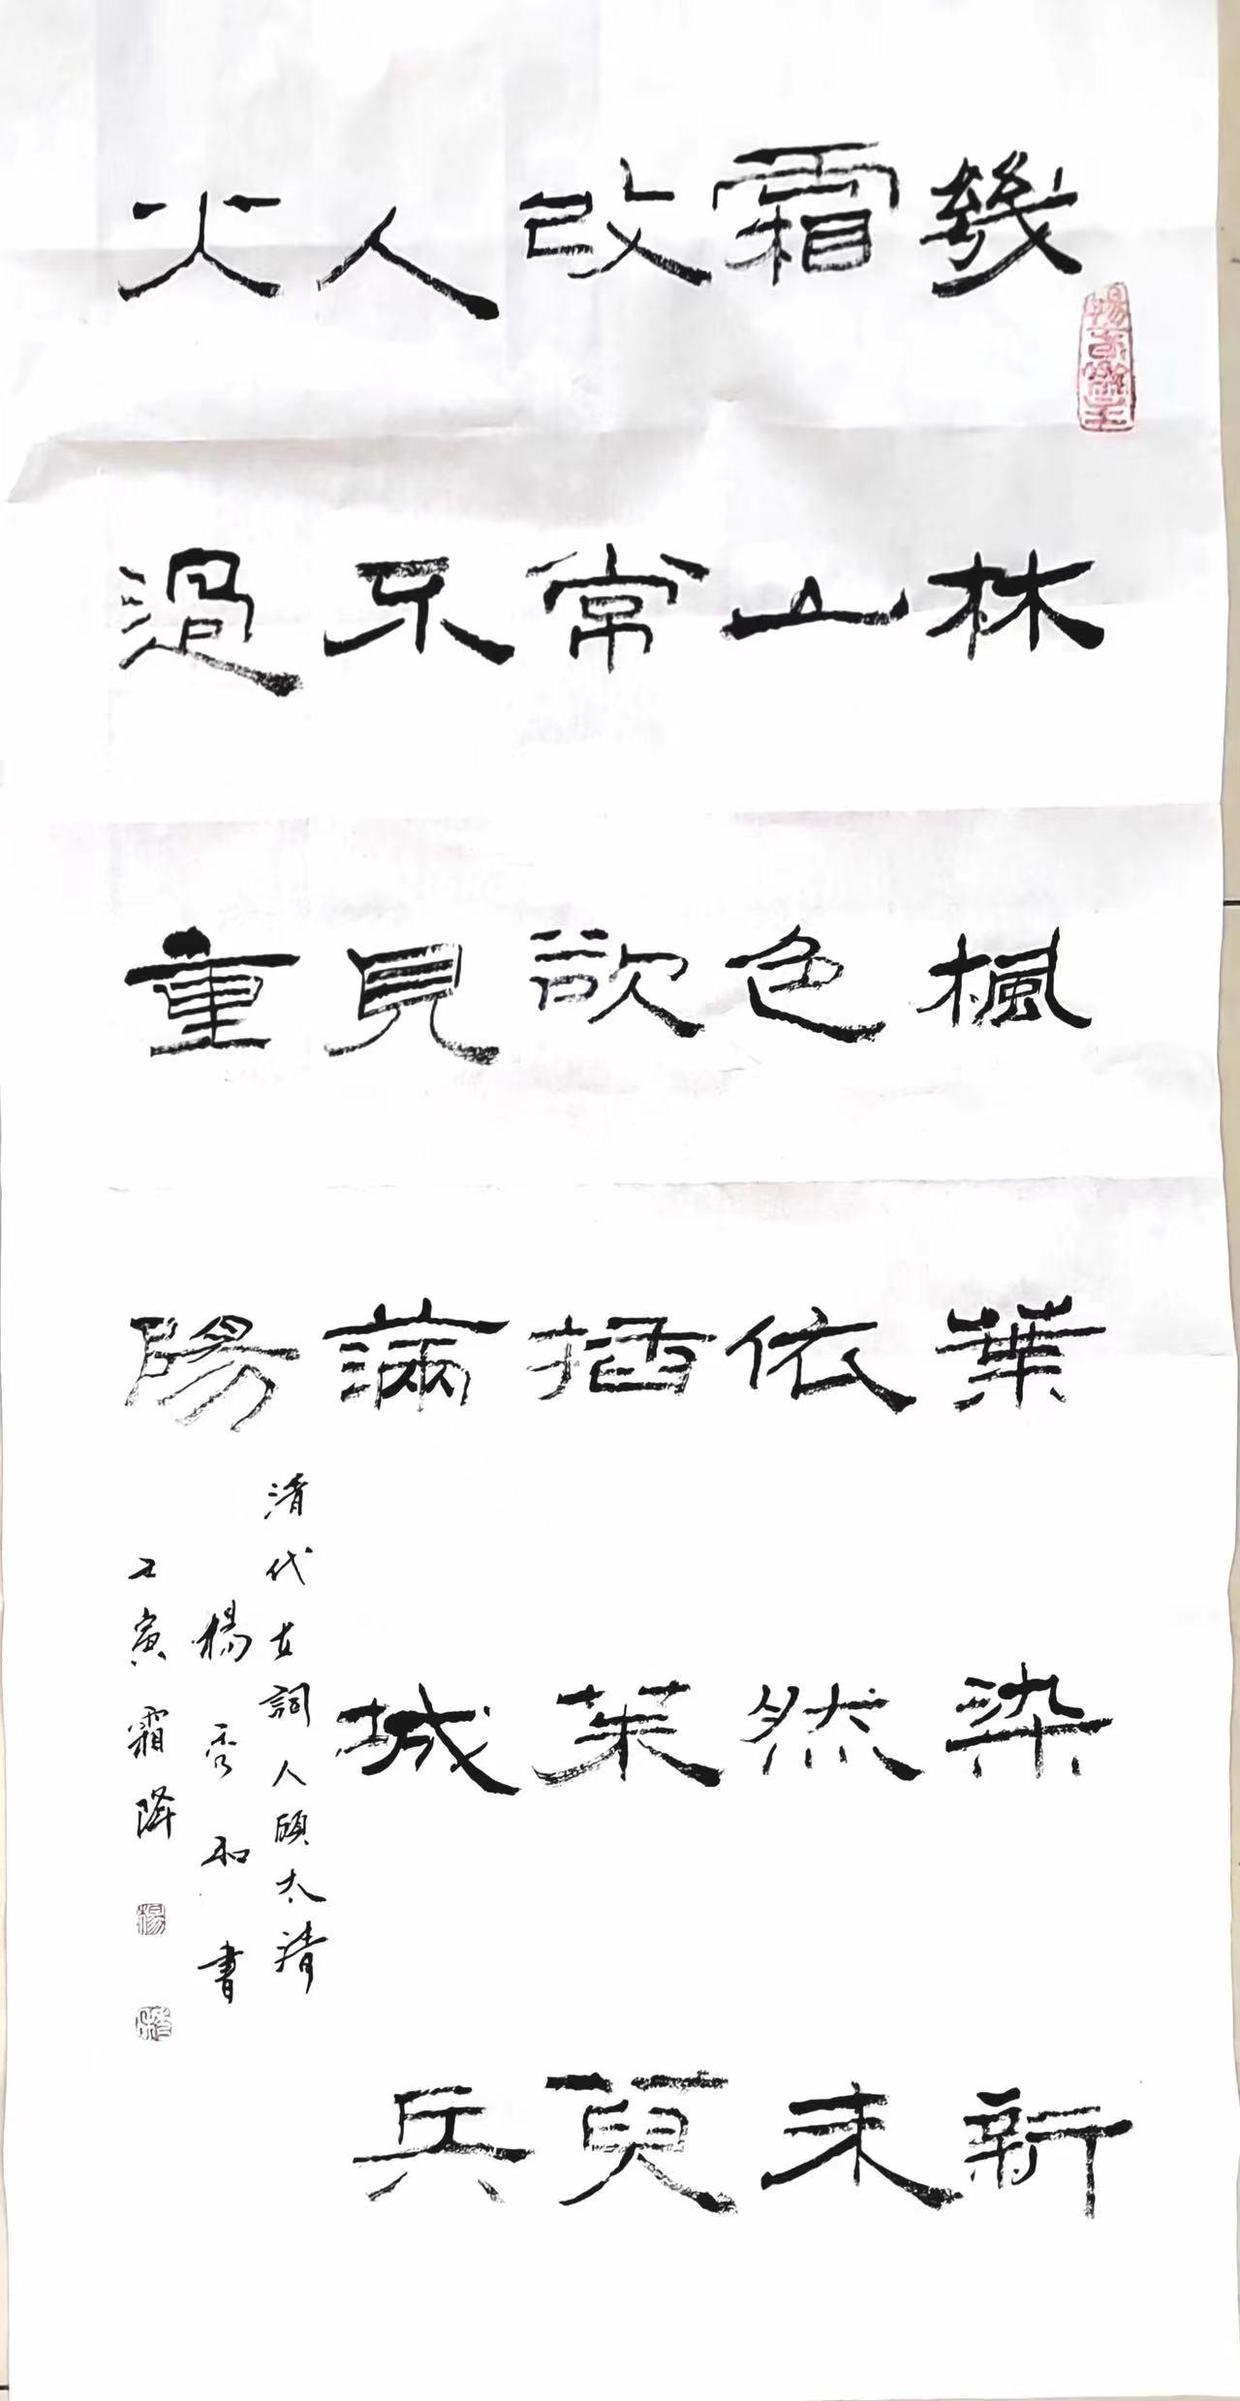 幾林楓葉染新
霜山色依然未
改常欲插茱萸
人不見滿城兵
火過重陽
清代女詞人顧太清
楊秀和書
壬寅霜降
楊